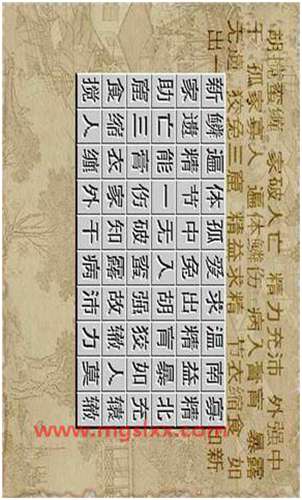 胡搅蛮缠 家破人亡 精力充沛 外强中
干 孤家寡人 遍体鳞伤 病入膏肓 暴露
无遗 狡兔三窟 精益求精 节衣缩食 如
出一
新
新鳞遍体孤爱求温南寡
家遗精节中兔出精益
助亡能一无入胡肓暴北
窟三膏伤破蛮强狡如充
食缩衣家知露故辙人辕
搅人缠外干病沛力莫辙
www.mgslxx.com